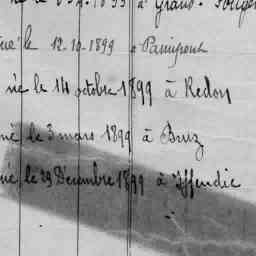 à Grand-
né le 12-10-1899 à Paimpont
né le 14 octobre 1899 à Redon
né le 3 mars 1899 à Bruz
né le 29 Décembre 1899 à Iffendic